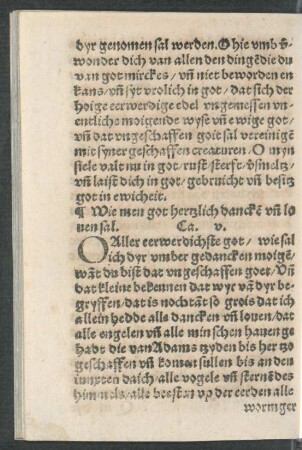 dyr genomen sal werden. O hie vmb v̄
wonder dich van allen den dingē die du
van got mirckes / vn̄ niet beworden en
kans / vn̄ syt vrolich in got / dat sich der
hoige eerwerdige edel vngemessen vn
entlichs moigende wyse vn̄ ewige got /
vn̄ dat vngeschaffen goit sal vereinigē
mit syner geschaffen creaturen. O myn
siele valt nu in got / rust sterft / v̄smeltz /
vn̄ laist dich in got / gebruicht vn̄ besitz
got in ewicheit.
¶ Wie men got hertzlich danckē vn̄ lo
uen sal. Ca. v.
O Aller eerwerdichste got / wie sal
ich dyr vmber gedancken moigē /
wāt du bist dat vngeschaffen goet / Vn̄
dat kleine bekennen dat wyr vā dyr be-
gryffen / dat is nochtāt so grois dat ich
allein hedde alle dancken vn̄ louen / dat
alle engelen vn̄ alle minschen hauen ge
hadt die van Adams tzyden bis her zo
geschaffen vn̄ komen sullen bis an den
iungsten daich / alle vogele vn̄ sternē des
himmels / alle beesten vp der eerden alle
wormger